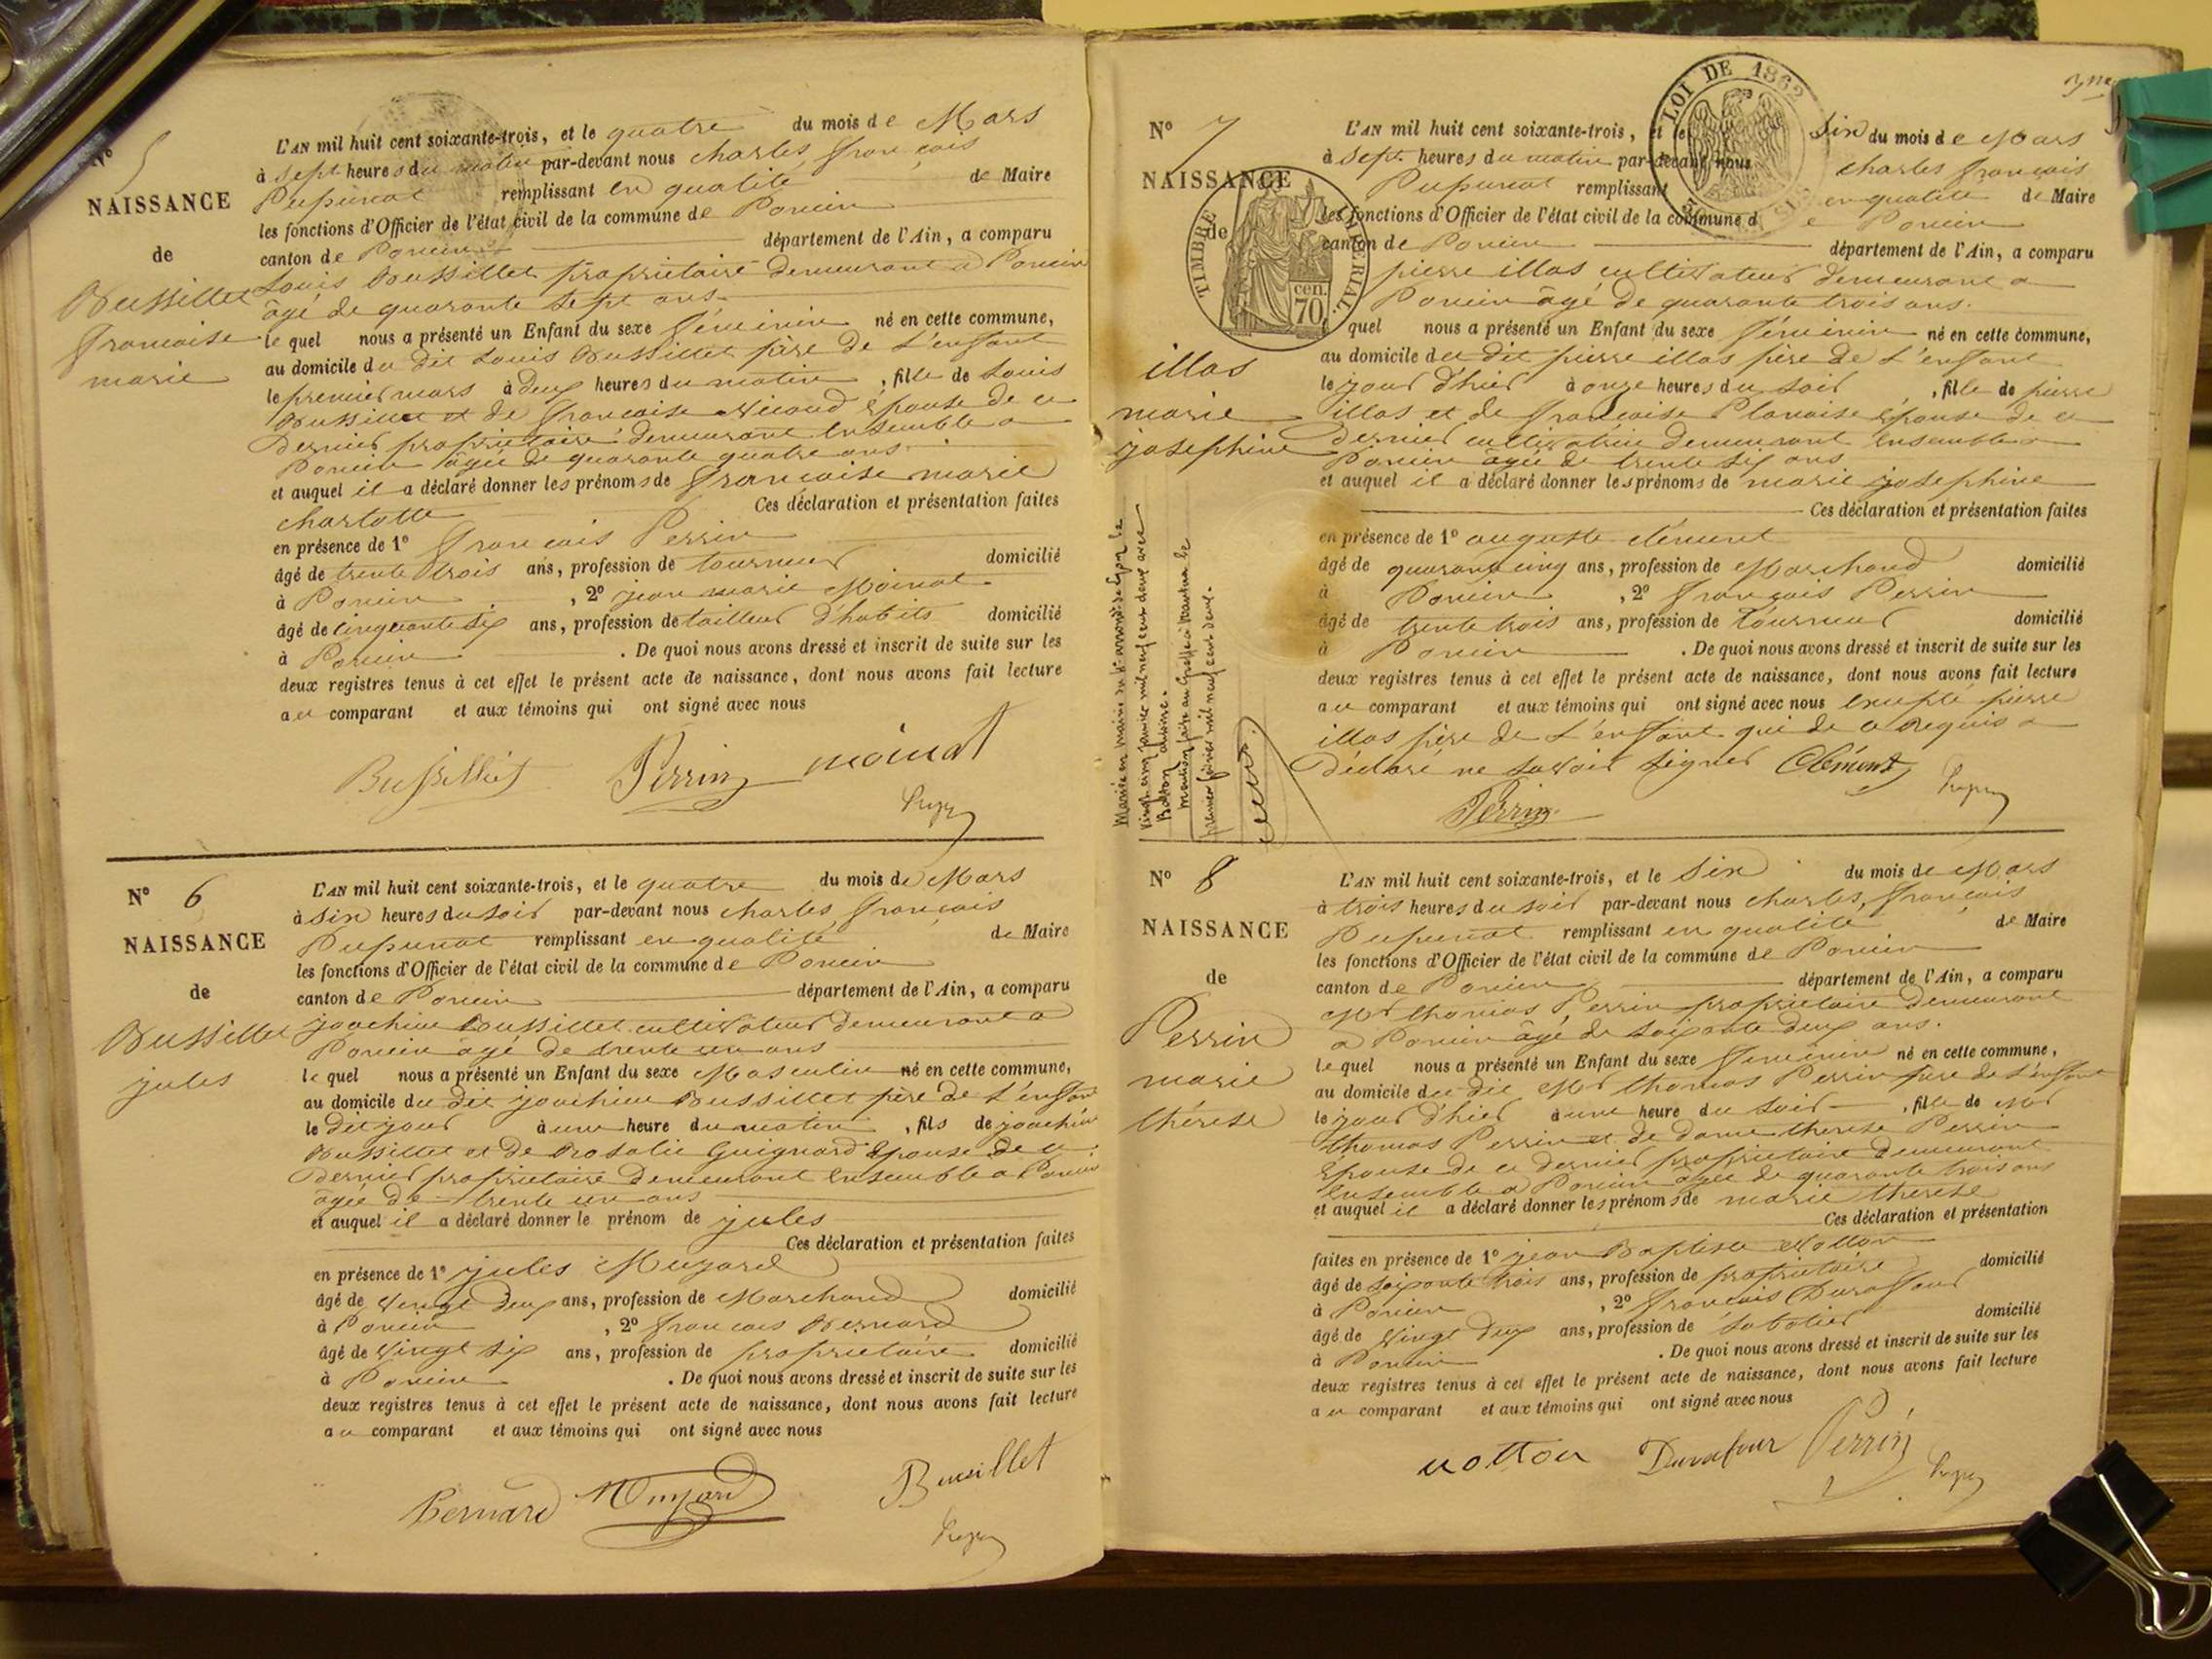 N° 5
NAISSANCE
de
Bussillet
francoise
marie
L'AN mil huit cent soixante-trois, et le quatre du mois de Mars
à sept heures du matin par-devant nous charles, francois
Pupunat remplissant en qualité de Maire
les fonctions d'Officier de l'état civil de la commune de Poncin
canton de Poncin département de l'Ain, a comparu
Louis Bussillet propriétaire demeurant a Poncin
âgé de quarante sept ans
le quel nous a présenté un Enfant du sexe féminin né en cette commune,
au domicile du dit Louis Bussillet père de l'enfant
le premier mars à deux heures du matin, fille de Louis
Bussillet et de francoise épouse de ce
dernier propriétaire demeurant ensemble a
Poncin âgée de quarante quatre ans
et auquel il a déclaré donner les prénoms de francoise marie
charlotte Ces déclaration et présentation faites
en présence de 1° francois Perrin
âgé de trente trois ans, profession de tourneur domicilié
à Poncin, 2° jean marie Moinat
âgé de cinquante six ans, profession de tailleur d'habits domicilié
à Poncin. De quoi nous avons dressé et inscrit de suite sur les
deux registres tenus à cet effet le présent acte de naissance, dont nous avons fait lecture
au comparant et aux témoins qui ont signé avec nous
Bussillet Perrin moinat
N° 6
NAISSANCE
de
Bussillet
jules
L'AN mil huit cent soixante-trois, et le quatre du mois de Mars
à six heures du soir par-devant nous charles, francois
Pupunat remplissant en qualité de Maire
les fonctions d'Officier de l'état civil de la commune de Poncin
canton de Poncin département de l'Ain, a comparu
joachim Bussillet cultivateur demeurant a
Poncin âgé de trente un ans
le quel nous a présenté un Enfant du sexe Masculin né en cette commune,
au domicile du dit joachim Bussillet père de l'enfant
le dit jour à une heure du matin, fils de joachim
Bussillet et de Rosalie Guignard épouse de ce
dernier propriétaire demeurant ensemble a Poncin
âgée de trente un ans
et auquel il a déclaré donner le prénom de jules
Ces déclaration et présentation faites
en présence de 1° jules Muzard
âgé de vingt deux ans, profession de Marchand domicilié
à Poncin, 2° francois Bernard
âgé de vingt six ans, profession de propriétaire domicilié
à Poncin. De quoi nous avons dressé et inscrit de suite sur les
deux registres tenus à cet effet le présent acte de naissance, dont nous avons fait lecture
au comparant et aux témoins qui ont signé avec nous
Bernard Muzard Bussillet
N° 7
NAISSANCE
de
TIMBRE IMPERIAL.
cen. 70
LOI DE 1862
illas
marie
josephine
L'AN mil huit cent soixante-trois, et le six du mois de Mars
à sept heures du matin par-devant nous charles francois
Pupunat remplissant en qualité de Maire
les fonctions d'Officier de l'état civil de la commune de Poncin
canton de Poncin département de l'Ain, a comparu
pierre illas cultivateur demeurant a
Poncin âgé de quarante trois ans.
quel nous a présenté un Enfant du sexe féminin né en cette commune,
au domicile du dit pierre illas père de l'enfant
le jour d'hier à onze heures du soir, fille de pierre
illas et de francoise Planaise épouse de ce
dernier cultivatrice demeurant ensemble a
Poncin âgée de trente six ans
et auquel il a déclaré donner les prénoms de marie josephine
Ces déclaration et présentation faites
en présence de 1° auguste clément
âgé de quarante cinq ans, profession de Marchand domicilié
à Poncin, 2° françois Perrin
âgé de trente trois ans, profession de tourneur domicilié
à Poncin. De quoi nous avons dressé et inscrit de suite sur les
deux registres tenus à cet effet le présent acte de naissance, dont nous avons fait lecture
au comparant et aux témoins qui ont signé avec nous excepté pierre
illas père de l'enfant qui de ce requis a
déclaré ne savoir signer Clément
Perrin
Mariée en mairie du arrond. de Lyon le
vingt cinq janvier mil neuf cent deux avec
Mention faite au Greffe à Nantua le
premier février mil neuf cent deux.
N° 8
NAISSANCE
de
Perrin
marie
thérèse
L'AN mil huit cent soixante-trois, et le six du mois de Mars
à trois heures du soir par-devant nous charles, francois
Pupunat remplissant en qualité de Maire
les fonctions d'Officier de l'état civil de la commune de Poncin
canton de Poncin département de l'Ain, a comparu
Mr thomas Perrin propriétaire demeurant
a Poncin âgé de soixante deux ans.
le quel nous a présenté un Enfant du sexe féminin né en cette commune,
au domicile du dit Mr thomas Perrin père de l'enfant
le jour d'hier à une heure du soir, fille de Mr
thomas Perrin et de dame therese Perrin
épouse de ce dernier propriétaire demeurant
ensemble a Poncin âgée de quarante trois ans
et auquel il a déclaré donner les prénoms de marie therese
Ces déclaration et présentation
faites en présence de 1° jean Baptiste Notton
âgé de soixante trois ans, profession de propriétaire domicilié
à Poncin, 2° francois Durafour
âgé de vingt deux ans, profession de sabotier domicilié
à Poncin. De quoi nous avons dressé et inscrit de suite sur les
deux registres tenus à cet effet le présent acte de naissance, dont nous avons fait lecture
au comparant et aux témoins qui ont signé avec nous
notton Durafour Perrin